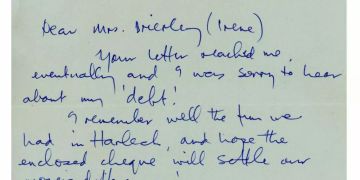 Dear Mrs. Brierley (Irene)
Your letter reached me
eventually and I was sorry to hear
about my 'debt'!
I remember well the fun we
had in Harlech, and hope the
enclosed cheque will settle our